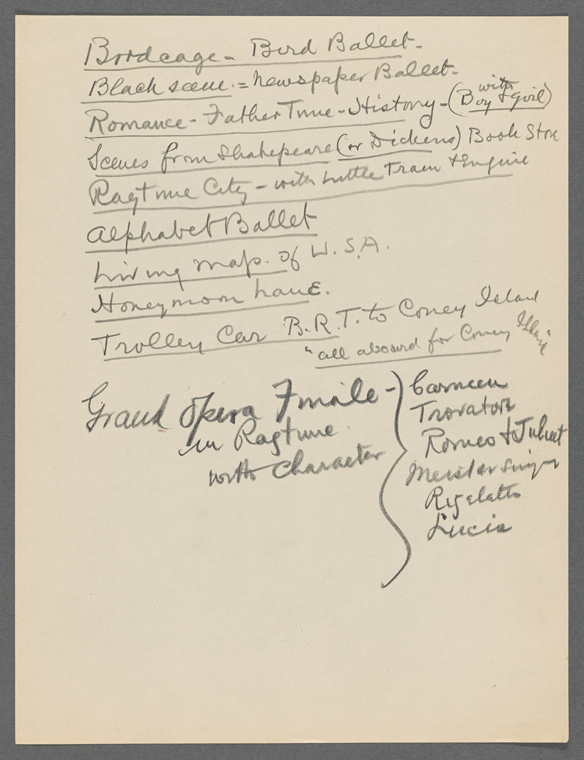 Birdcage - Bird Ballet -
Black scene = Newspaper Ballet -
Romance - Father Time - History - (with Boy & Girl)
Scenes from Shakepeare (or Dickens) Book Store
Ragtime City - with little Train & Engine
Alphabet Ballet
Living map of U.S.A.
Honeymoon Lane.
Trolley Car B.R.T. to Coney Island
"all aboard for Coney Island"
Grand Opera Finale -
in Ragtime
with Character
Carmen
Trovatore
Romeo & Juliet
Meistersinger
Rigeletto
Lucia